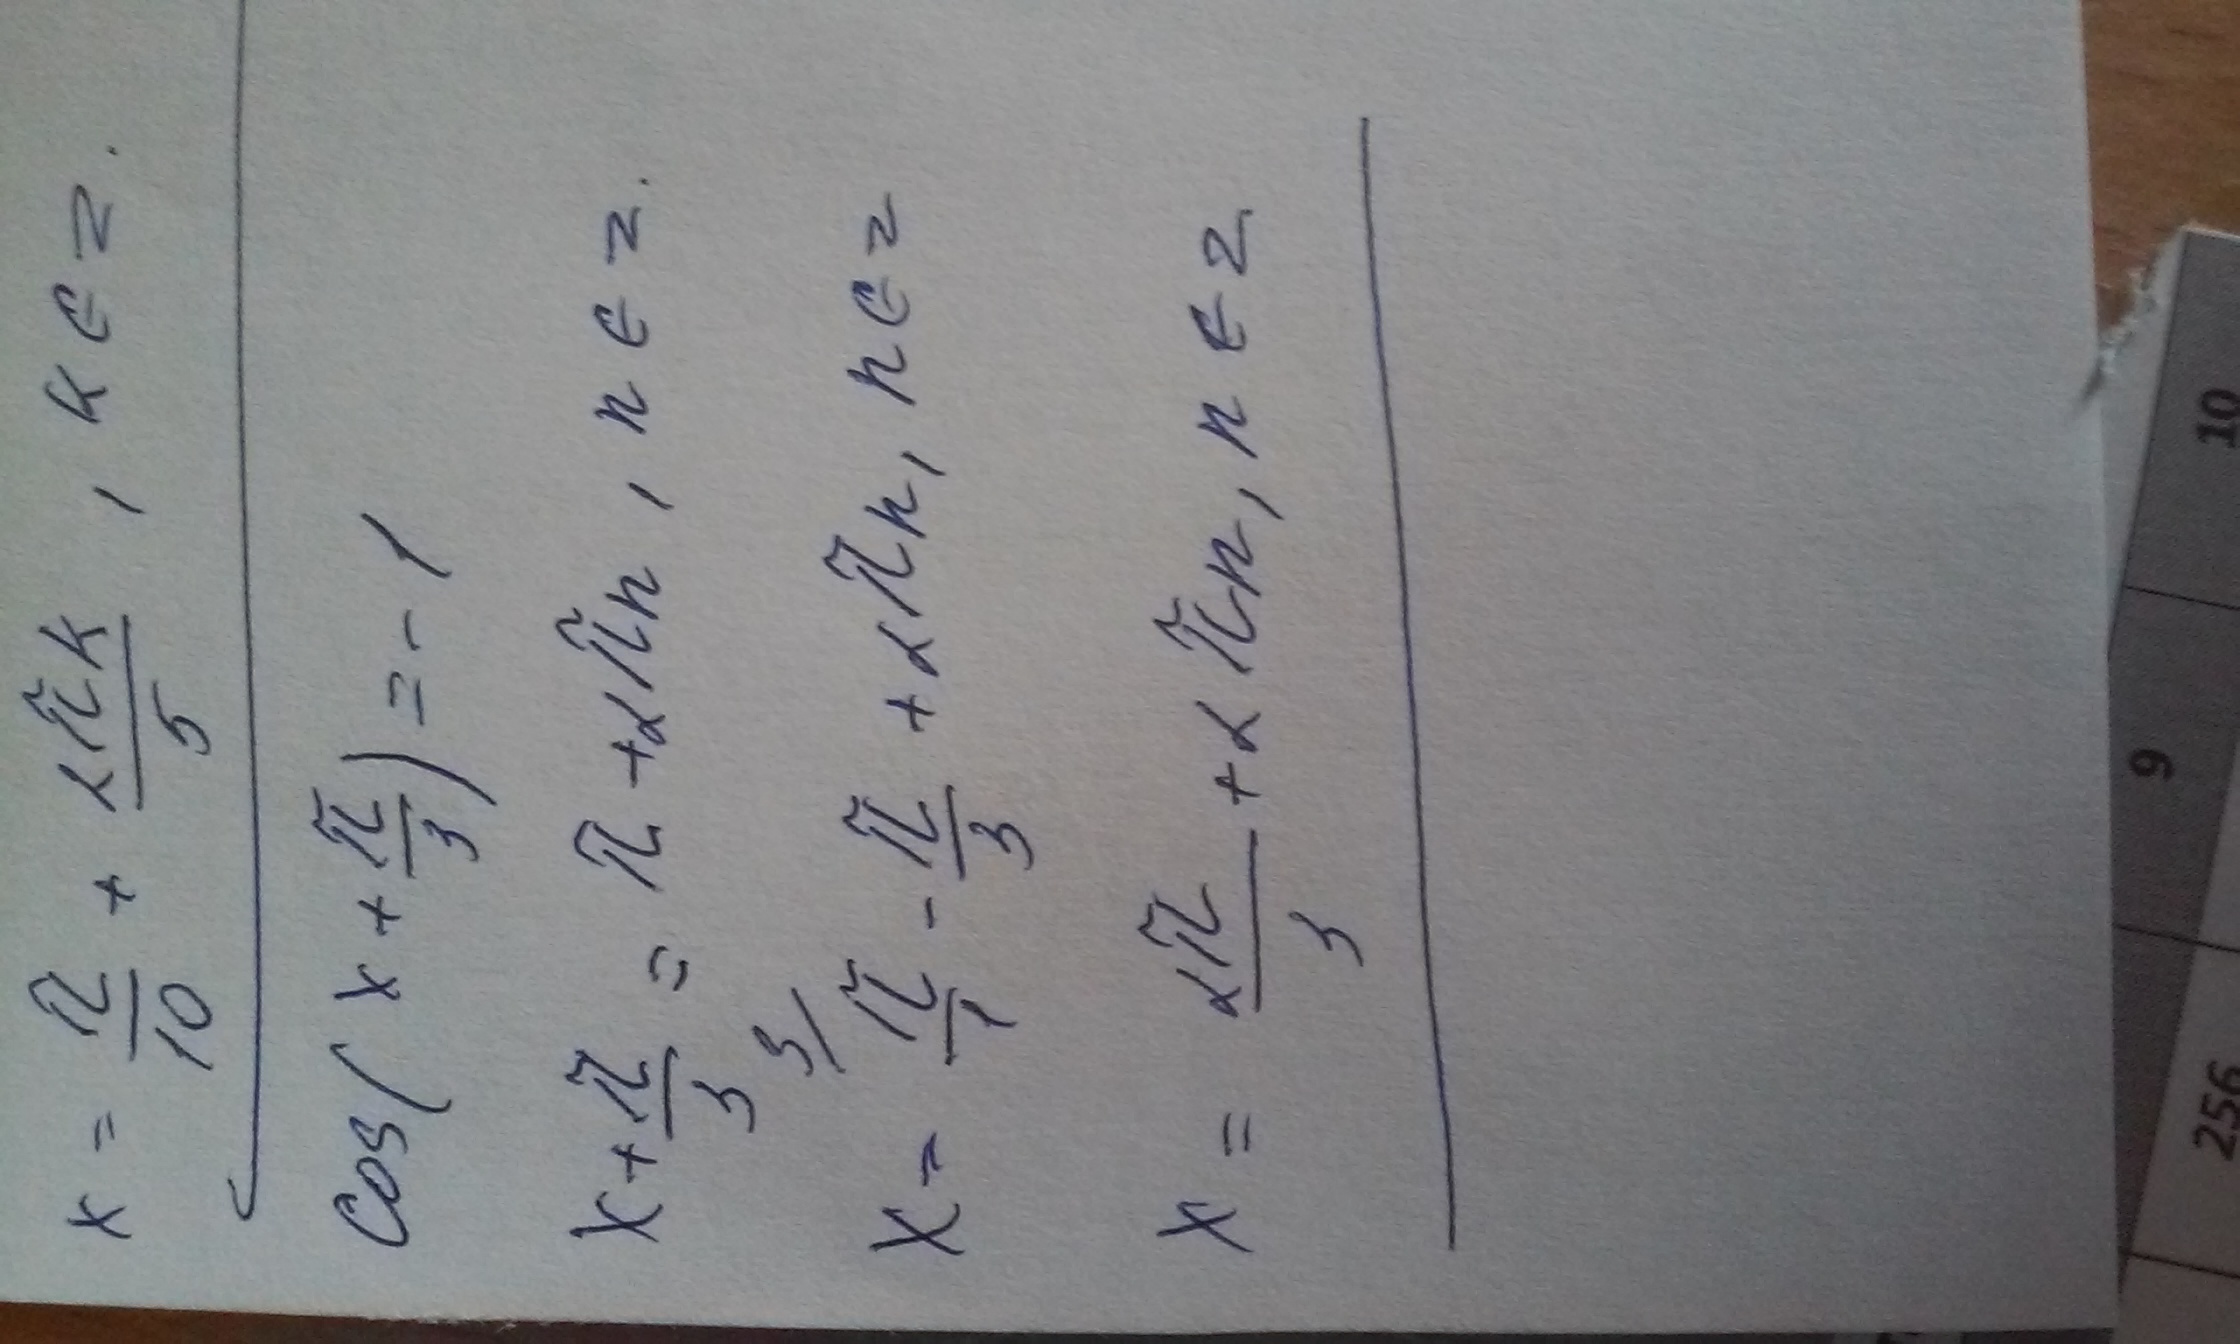 x = π/10 + 2πk/5 , k ∈ Z.
cos(x + π/3) = -1
x + π/3 = π + 2πn , n ∈ Z.
x = ³⁄ π/1 - π/3 + 2πn, n ∈ Z
x = 2π/3 + 2πn, n ∈ Z
256
9
10